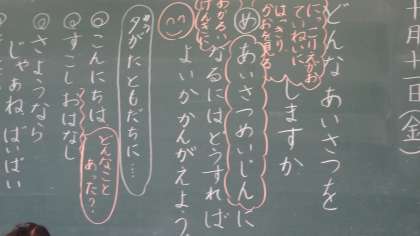 十月十一日(金)
どんなあいさつを
しますか
にっこりえがお
ていねいに
はっきり
かおを見る
め あいさつめいじんに
なるにはどうすれば
よいかかんがえよう。
夕がたにともだちに…
◎こんにちは
どんなこと
あった?
◎すこしおはなし
◎さようなら
じゃあね、ばいばい